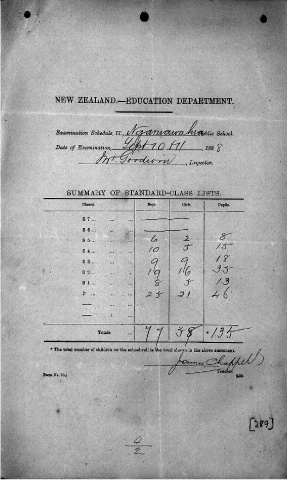 NEW ZEALAND.—EDUCATION DEPARTMENT.
Examination Schedule, II. Ngaruawahia Public School.
Date of Examination, Sept 10th 1888
Mr Goodwin, Inspector.
SUMMARY OF STANDARD-CLASS LISTS.
Classes. Boys. Girls. Pupils.
S 7 .. .. ..
S 6 .. .. ..
S 5 .. .. .. 6 2 8
S 4 .. .. .. 10 5 15
S 3 .. .. .. 9 9 18
S 2 .. .. .. 19 16 35
S 1 .. .. .. 8 5 13
P .. .. .. 25 21 46
— .. ..
— .. ..
Totals .. 77 58 * 135
* The total number of children on the school-roll is the total shown in the above summary.
James Chappell
Teacher.
[289]